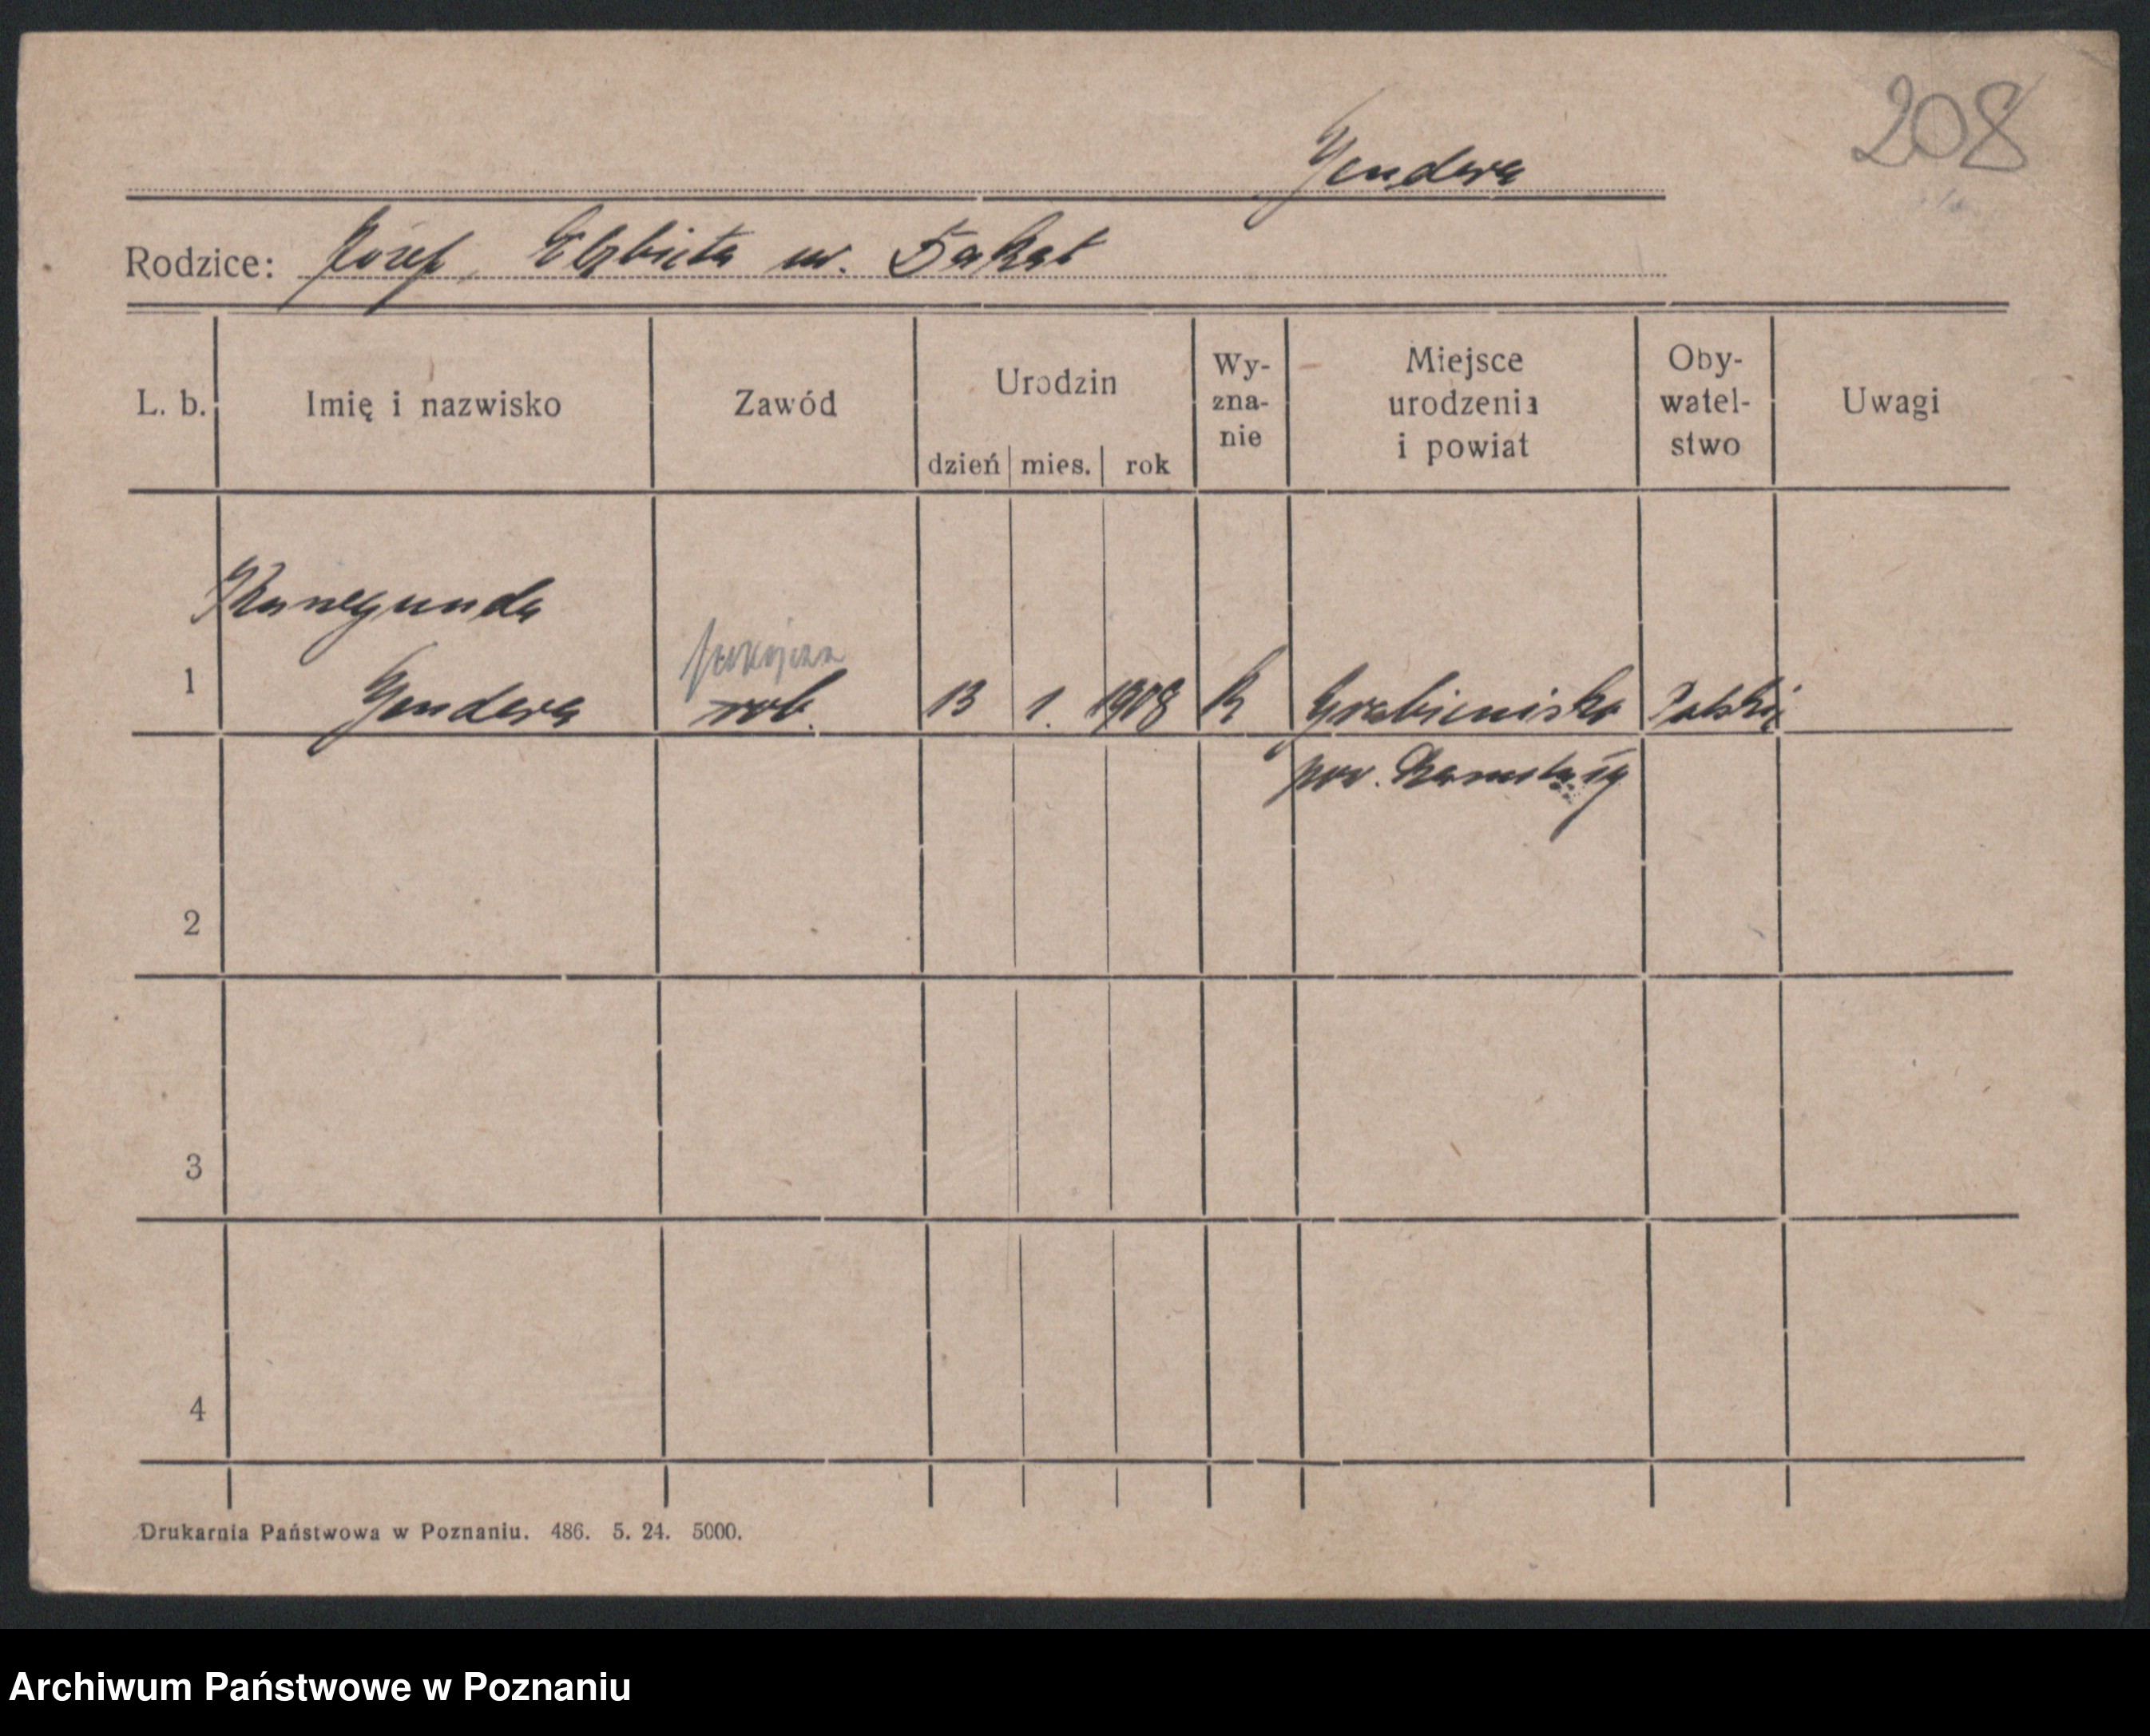 208
Gendera
Rodzice: Józef, Elżbieta ur. Bakat
L. b. Imię i nazwisko Zawód Urodzin dzień mies. rok Wy-zna-nie Miejsce urodzenia i powiat Oby-watel-stwo Uwagi
Kunegunda
1 Gendera rob. 13 1. 1908 K Grabienisko Polskie
pow.
2
3
4
Drukarnia Państwowa w Poznaniu. 486. 5. 24. 5000.
Archiwum Państwowe w Poznaniu